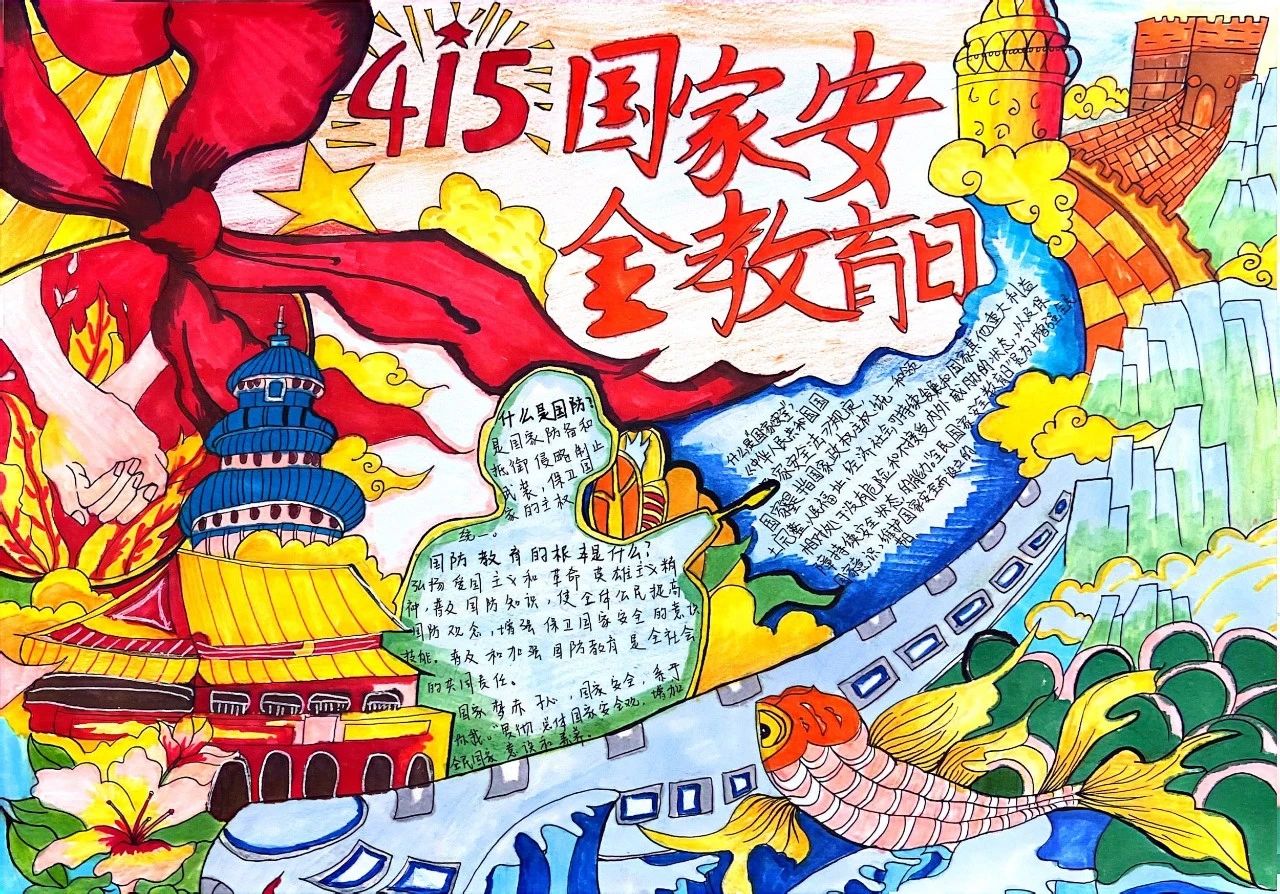 415国家安
全教育日
什么是国防?
是国家防备和
抵御侵略制止
武装,保卫国
家的主权
统一。
国防教育的根本是什么?
弘扬爱国主义和革命英雄主义精
神,普及国防知识,使全体公民提高
国防观念,增强保卫国家安全的意识
技能。普及和加强国防教育是全社会
的共同责任。
国家梦亦 ,国家安全,系于
你我。贯彻总体国家安全观,增加
全民国家意识和素养。
什么是国家安全
《中华人民共和国国
家安全法》规定,
国家 指国家政权、主权、统一和领
土完整、人民福祉、经济社会可持续发展和国家其他重大利益
相对处于没有危险和不受内外威胁的状态,以及保
障持续安全状态的能力。全民国家安全教育日是为了增强全
民 意识,维护国家安全而设立的